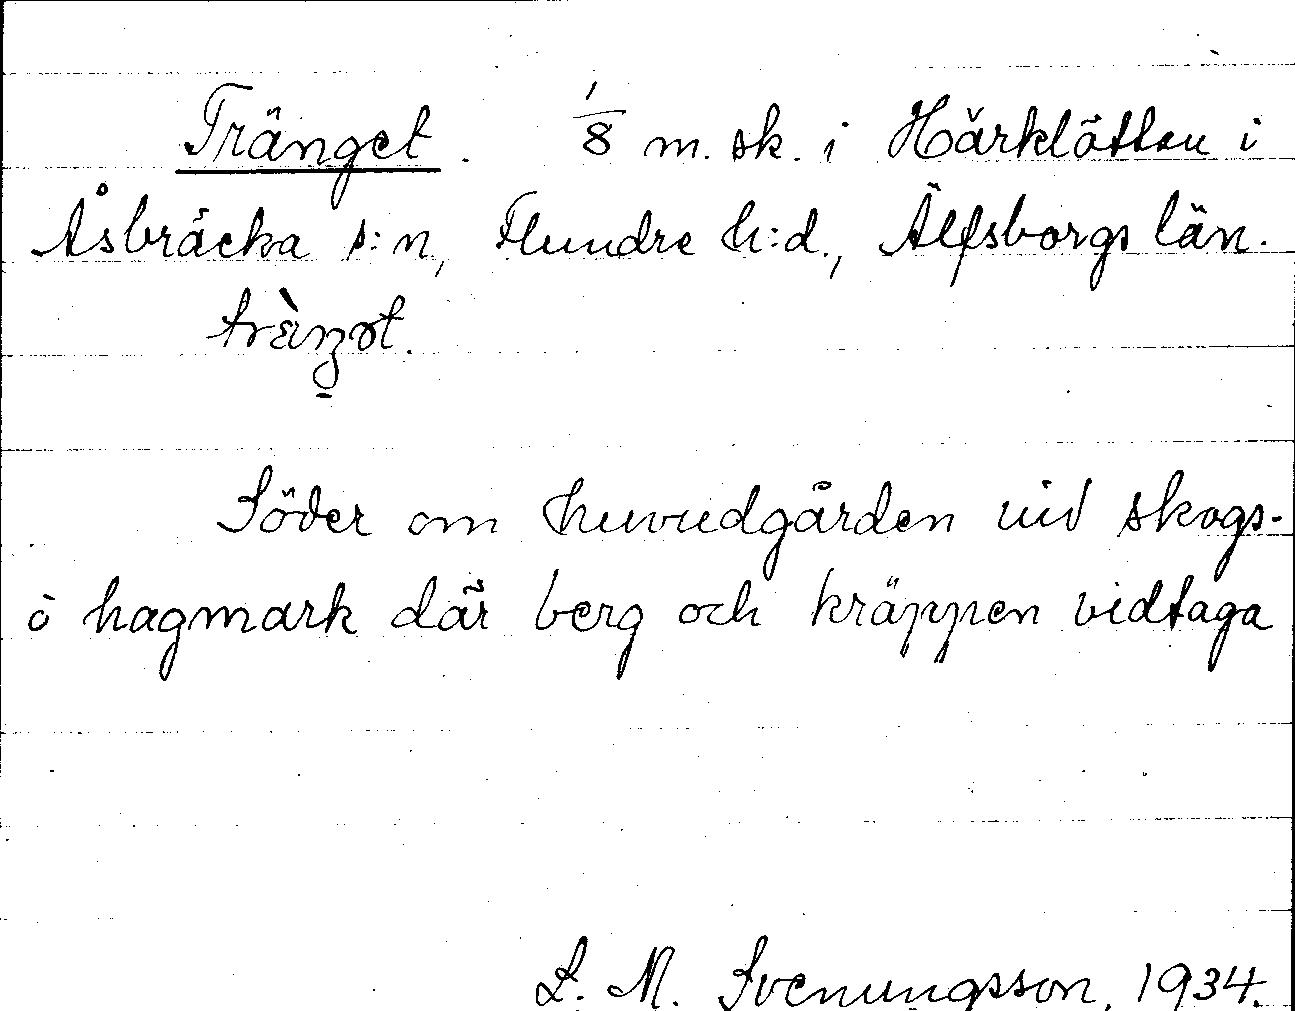 Tränget. 1/8 m. sk. i Härklätten i
Åsbräcka s:n, Flundre h:d., Älfsborgs län.
Söder om huvudgården vid skogs-
o hagmark där berg och kräppen vidtaga
L. M. Svenungsson, 1934.